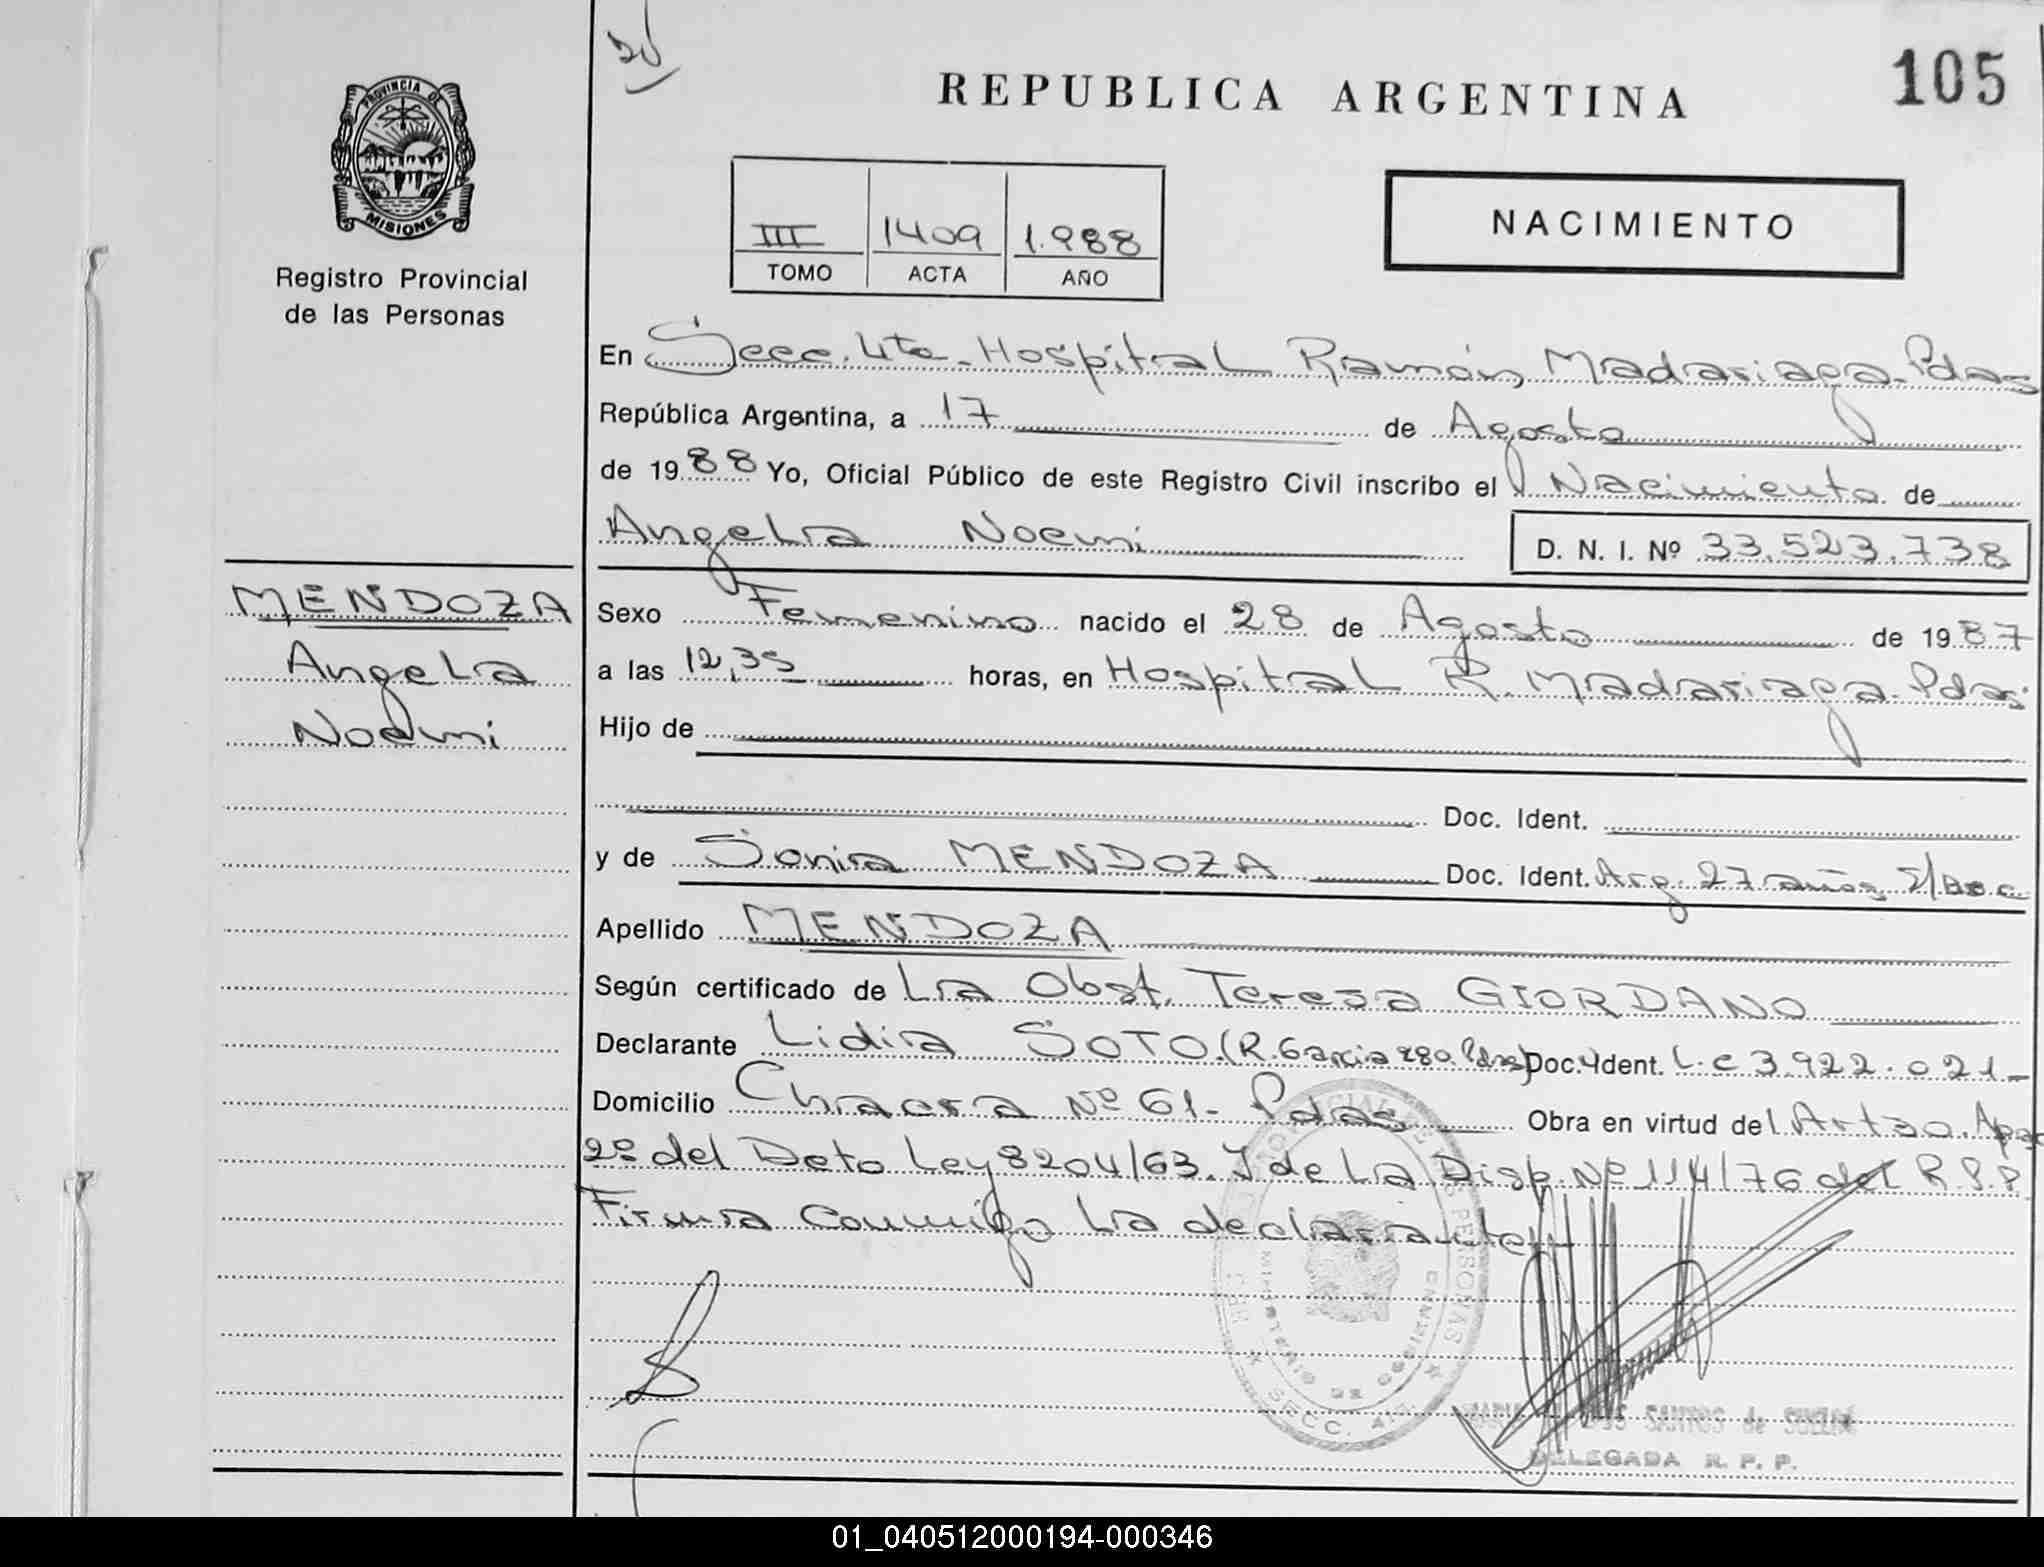 105
REPUBLICA ARGENTINA
PROVINCIA DE
MISIONES
Registro Provincial
de las Personas
III 1409 1.988
TOMO ACTA AÑO
NACIMIENTO
En Secc. 4ta. Hospital Ramón Madariaga-Pdas
República Argentina, a 17 de Agosto
de 1988 Yo, Oficial Público de este Registro Civil inscribo el Nacimiento de
Angela Noemi
D. N. I. Nº 33.523.738
MENDOZA
Angela
Noemi
Sexo Femenino nacido el 28 de Agosto de 1987
a las 12,35 horas, en Hospital R. Madariaga-Pdas
Hijo de
Doc. Ident.
y de Sonia MENDOZA Doc. Ident. Arg. 27 años S/Doc
Apellido MENDOZA
Según certificado de La Obst. Teresa GIORDANO
Declarante Lidia SOTO (R. Garcia 280. Pdas) Doc. Ident. L.C 3.922.021-
Domicilio Chacra Nº 61- Pdas Obra en virtud del Art 30. Apar
2º del Dcto Ley 8204/63. Y de La Disp. Nº 114/76 del R.P.P
Firma conmigo La declarante//
SANTOS de
DELEGADA R. P. P.
01_040512000194-000346